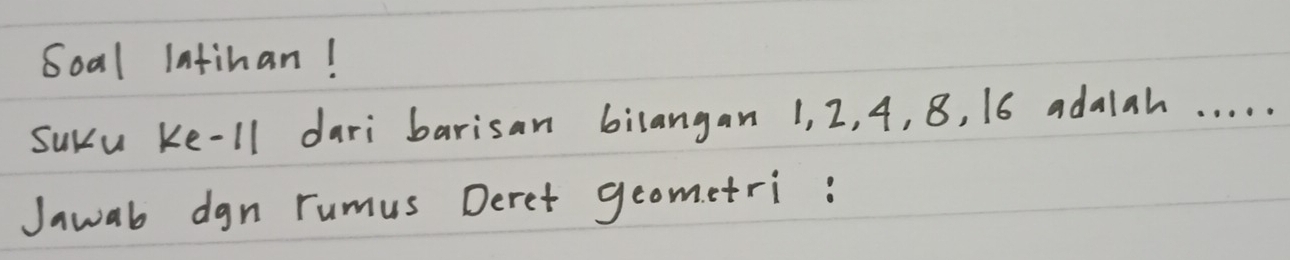 Soal latihan !
Suku ke-11 dari barisan bilangan 1, 2, 4, 8, 16 adalah .....
Jawab dgn rumus Deret geometri :